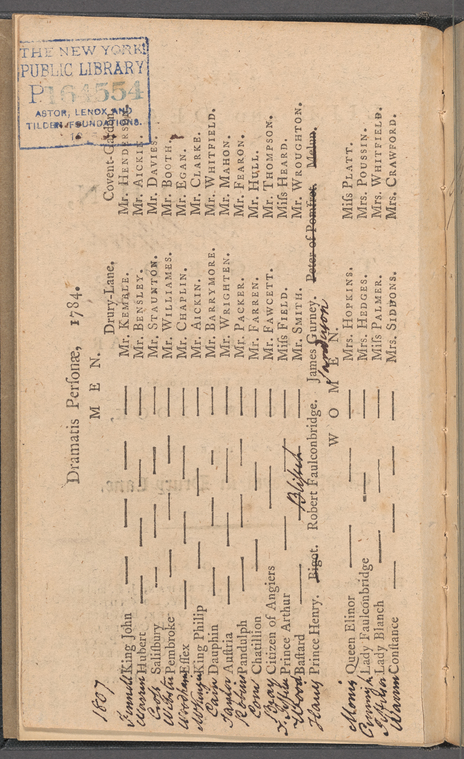 THE NEW YORK
PUBLIC LIBRARY
P164554
ASTOR, LENOX AND
TILDEN FOUNDATIONS.
Dramatis Personæ, 1784.
1807
M E N.
Drury-Lane. Covent-Garden.
King John Mr. KEMBLE. Mr. HENDERSON.
Hubert Mr. BENSLEY. Mr. AICKIN.
Salisbury Mr. STAUNTON. Mr. DAVIES.
Pembroke Mr. WILLIAMES. Mr. BOOTH.
Essex Mr. CHAPLIN. Mr. EGAN.
King Philip Mr. AICKIN. Mr. CLARKE.
Dauphin Mr. BARRYMORE. Mr. WHITFIELD.
Taylor Austria Mr. WRIGHTEN. Mr. MAHON.
Pandulph Mr. PACKER. Mr. FEARON.
Chatillion Mr. FARREN. Mr. HULL.
Bray Citizen of Angiers Mr. FAWCETT. Mr. THOMPSON.
Prince Arthur Miſs FIELD. Miſs HEARD.
Wood Baſtard Mr. SMITH. Mr. WROUGHTON.
Prince Henry. Bigot. Robert Faulconbridge. James Gurney. Peter of Pomfret. Melun.
W O M E N.
Queen Elinor Mrs. HOPKINS. Miſs PLATT.
Lady Faulconbridge Mrs. HEDGES. Mrs. POUSSIN.
Lady Blanch Miſs PALMER. Mrs. WHITFIELD.
Conſtance Mrs. SIDDONS. Mrs. CRAWFORD.